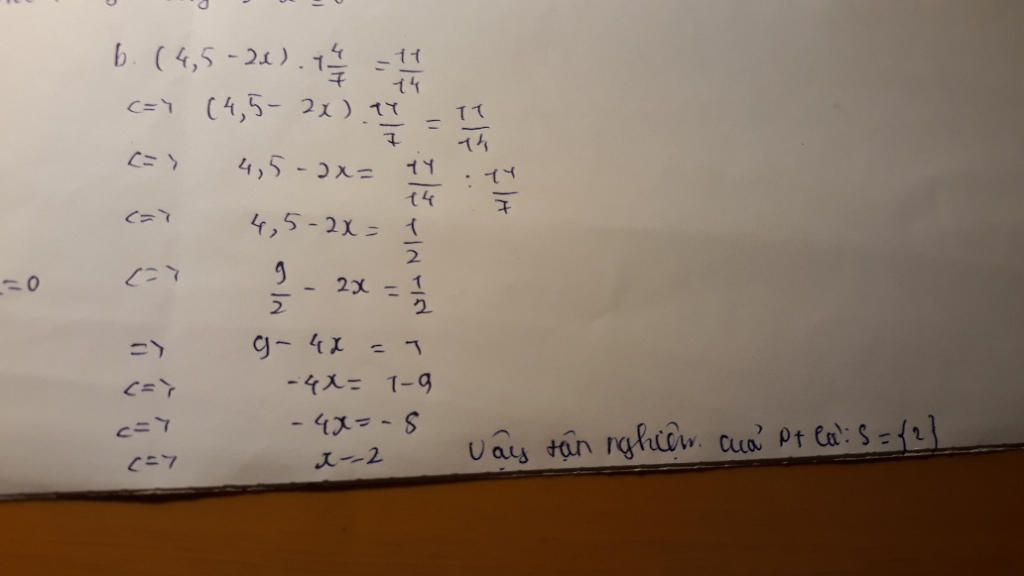 b. (4,5 - 2x) . 1 4/7 = 11/14
<=> (4,5 - 2x) . 11/7 = 11/14
<=> 4,5 - 2x = 11/14 : 11/7
<=> 4,5 - 2x = 1/2
=0 <=> 9/2 - 2x = 1/2
=> 9 - 4x = 1
<=> -4x = 1-9
<=> -4x = -8
<=> x = 2 Vậy tận nghiệm của pt là: S = {2}